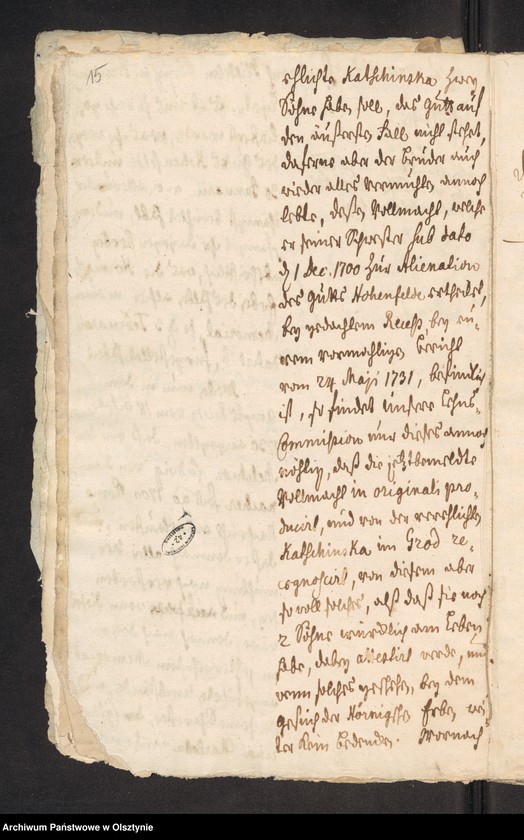 15
ehlichte Katschinska zwey
Söhne habe, soll, das Guth auf
den äußersten Fall nicht stehet,
daferne aber der Bruder auch
wieder alles Vermuthen annoch
lebte, deßen Vollmacht, welche
er seiner Schwester sub dato
d. 1 Dec. 1700 zur Alienation
des Guths Hohenfelde ertheilet,
bey gedachtem Recess, bey eü-
rem vormahligen Bericht
vom 24 Maji 1731, befindlich
ist, so findet unsere Lehns-
Commission nur dieses annoch
nöhtig, daß die jetztbemeldte
Vollmacht in originali pro-
ducirt, und von der verehlichten
Katschinska im Grod re-
cognoscirt, von diesem aber
so woll solches, alß daß sie noch
2 Söhne würcklich am Leben
habe, dabey attestirt werde, und
wenn solches geschehen, bey dem
Gesuch der Hörnigkschen Erben, wei-
ter kein Bedencken. Wornach
42
Archiwum Państwowe w Olsztynie